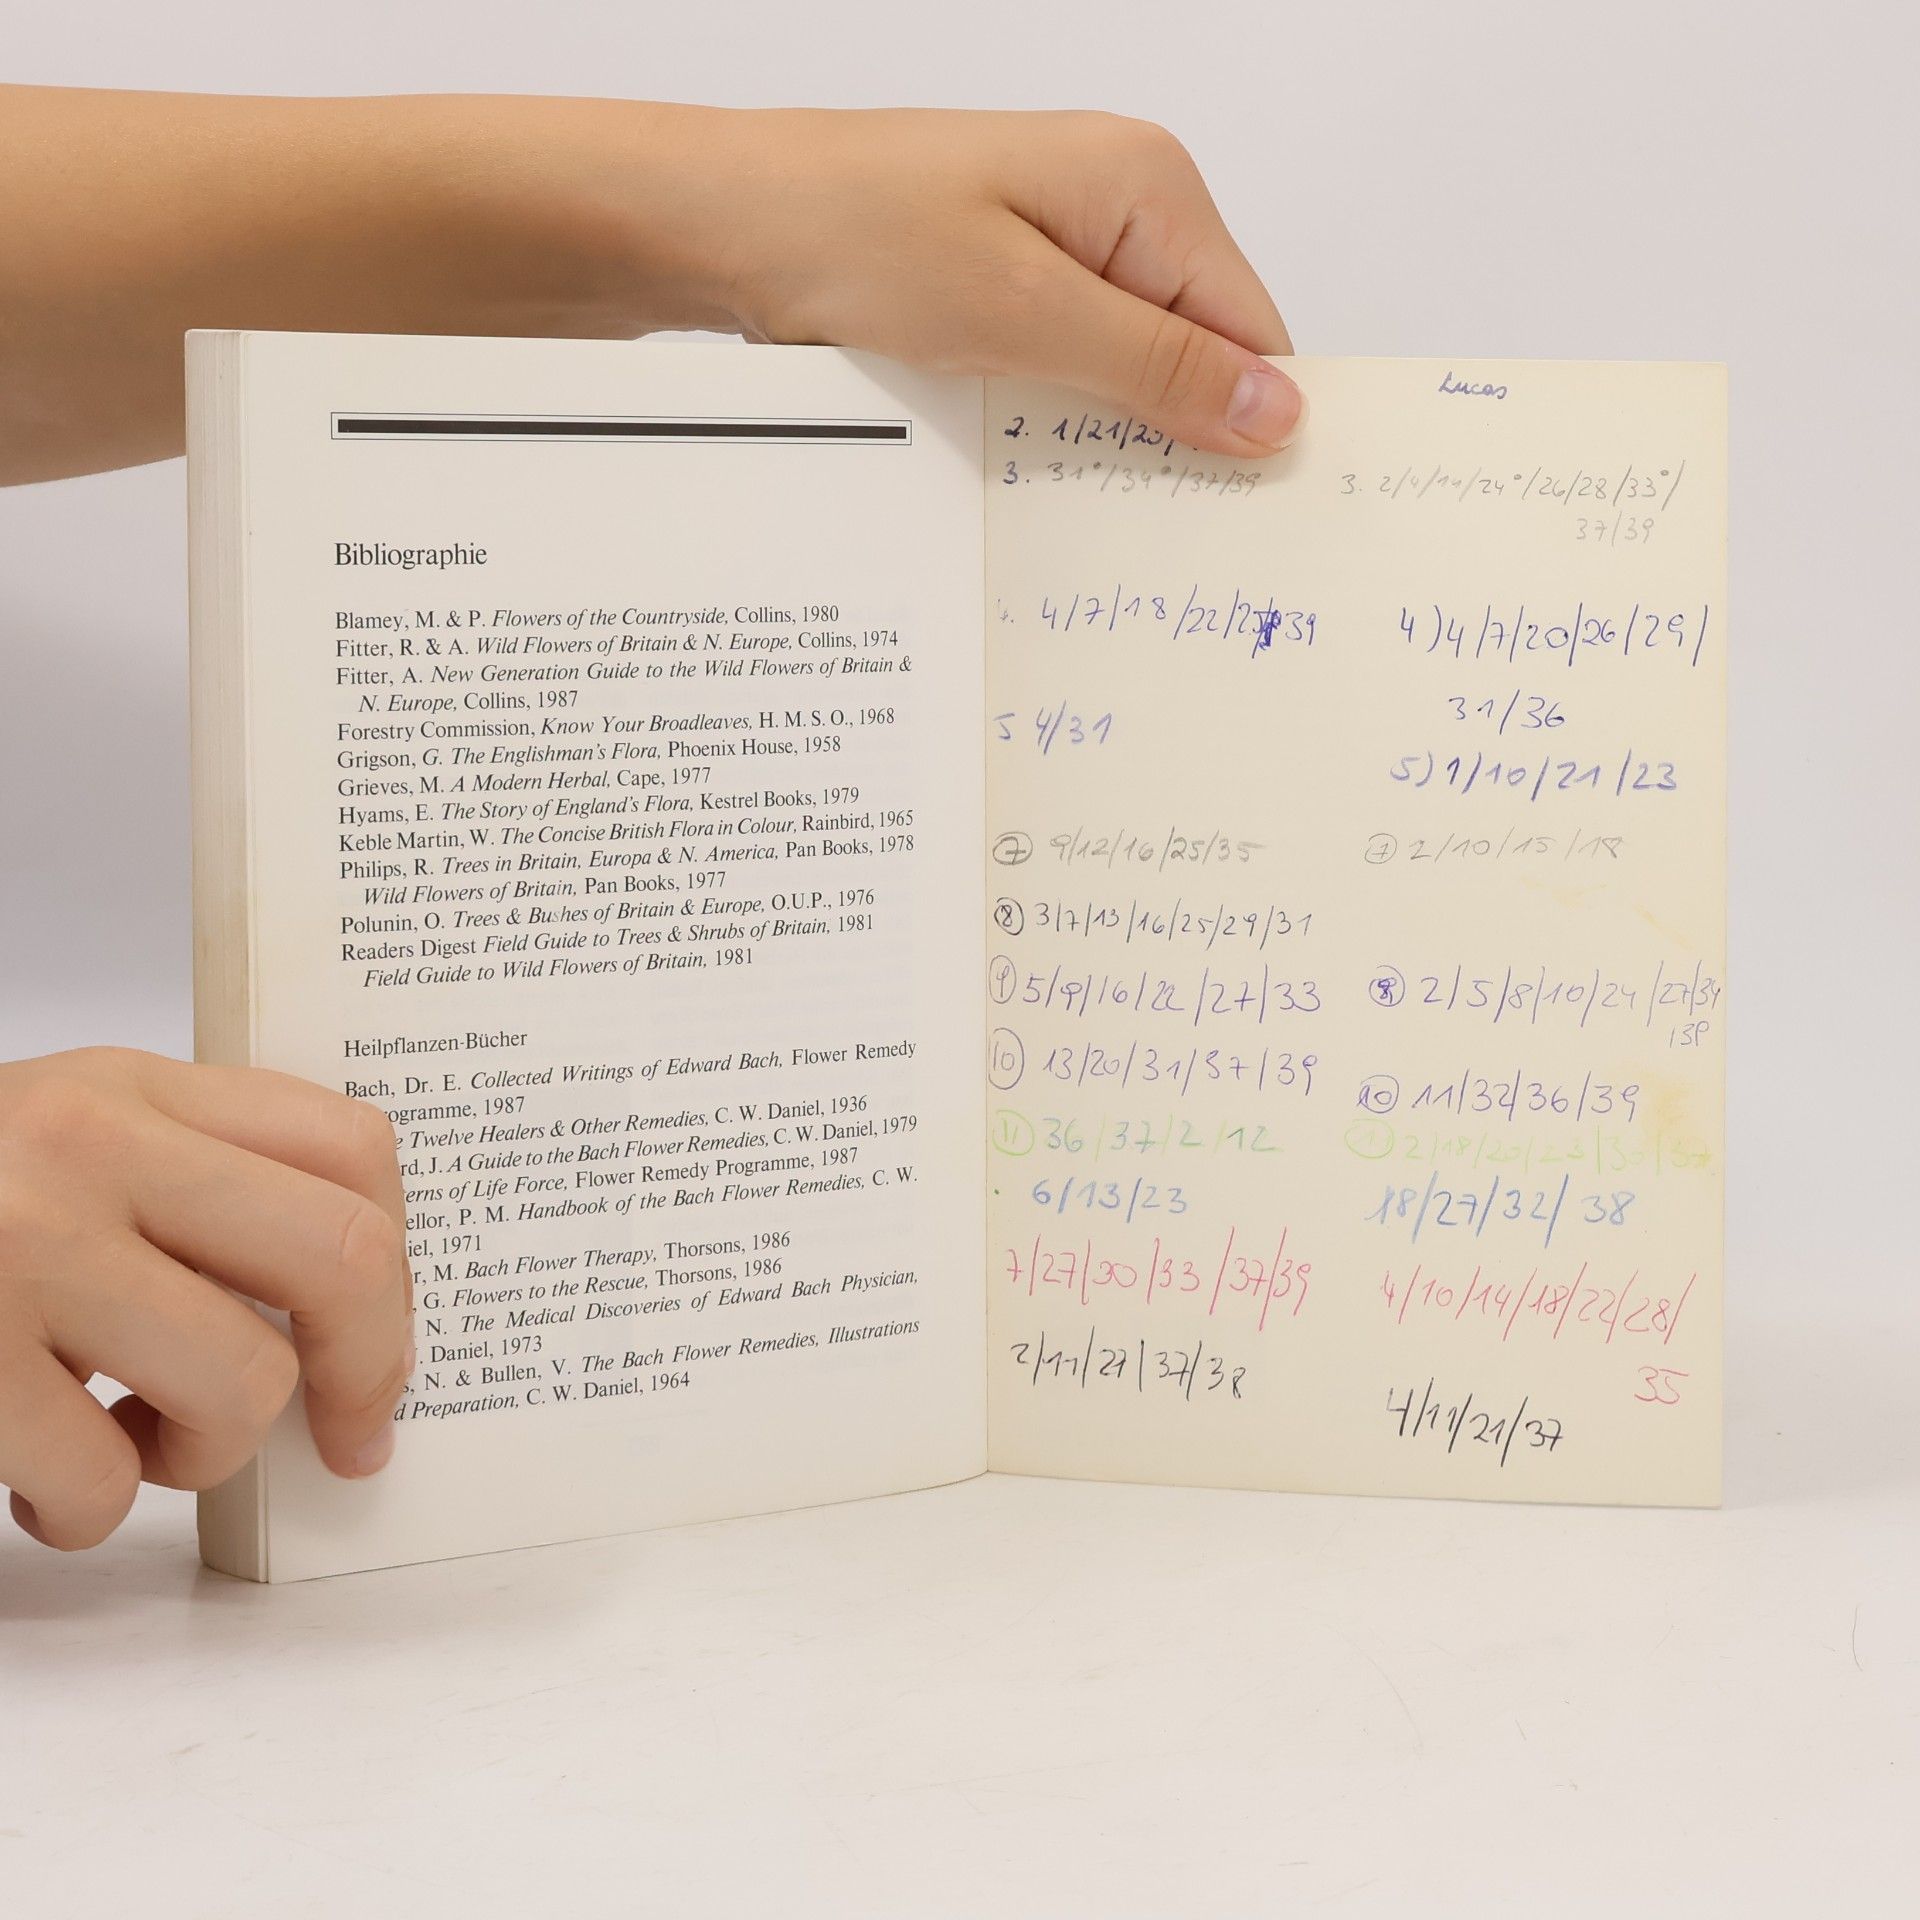 Bibliographie
Blamey, M. & P. Flowers of the Countryside, Collins, 1980
Fitter, R. & A. Wild Flowers of Britain & N. Europe, Collins, 1974
Fitter, A. New Generation Guide to the Wild Flowers of Britain &
N. Europe, Collins, 1987
Forestry Commission, Know Your Broadleaves, H. M. S. O., 1968
Grigson, G. The Englishman's Flora, Phoenix House, 1958
Grieves, M. A Modern Herbal, Cape, 1977
Hyams, E. The Story of England's Flora, Kestrel Books, 1979
Keble Martin, W. The Concise British Flora in Colour, Rainbird, 1965
Philips, R. Trees in Britain, Europa & N. America, Pan Books, 1978
Wild Flowers of Britain, Pan Books, 1977
Polunin, O. Trees & Bushes of Britain & Europe, O.U.P., 1976
Readers Digest Field Guide to Trees & Shrubs of Britain, 1981
Field Guide to Wild Flowers of Britain, 1981
Heilpflanzen-Bücher
Bach, Dr. E. Collected Writings of Edward Bach, Flower Remedy
ogramme, 1987
e Twelve Healers & Other Remedies, C. W. Daniel, 1936
rd, J. A Guide to the Bach Flower Remedies, C. W. Daniel, 1979
erns of Life Force, Flower Remedy Programme, 1987
ellor, P. M. Handbook of the Bach Flower Remedies, C. W.
iel, 1971
r, M. Bach Flower Therapy, Thorsons, 1986
, G. Flowers to the Rescue, Thorsons, 1986
N. The Medical Discoveries of Edward Bach Physician,
. Daniel, 1973
s, N. & Bullen, V. The Bach Flower Remedies, Illustrations
d Preparation, C. W. Daniel, 1964
2. 1/21/
3. 31°/34°/37/39
4. 4/7/18/22/ 39
5 4/31
7 9/12/16/25/35
8 3/7/13/16/25/29/31
9 5/9/16/22/27/33
10 13/20/31/37/39
11 36/37/2/12
6/13/23
7/27/30/33/37/39
2/11/21/37/38
Lucas
3. 2/4/11/24°/26/28/33°/
37/39
4) 4/7/20/26/29/
31/36
5) 1/10/21/23
7 2/10/15/18
8 2/5/8/10/24/27/34
/39
10 11/32/36/39
11 2/18/20/23/30/
18/27/32/38
4/10/14/18/22/28/
35
4/11/21/37